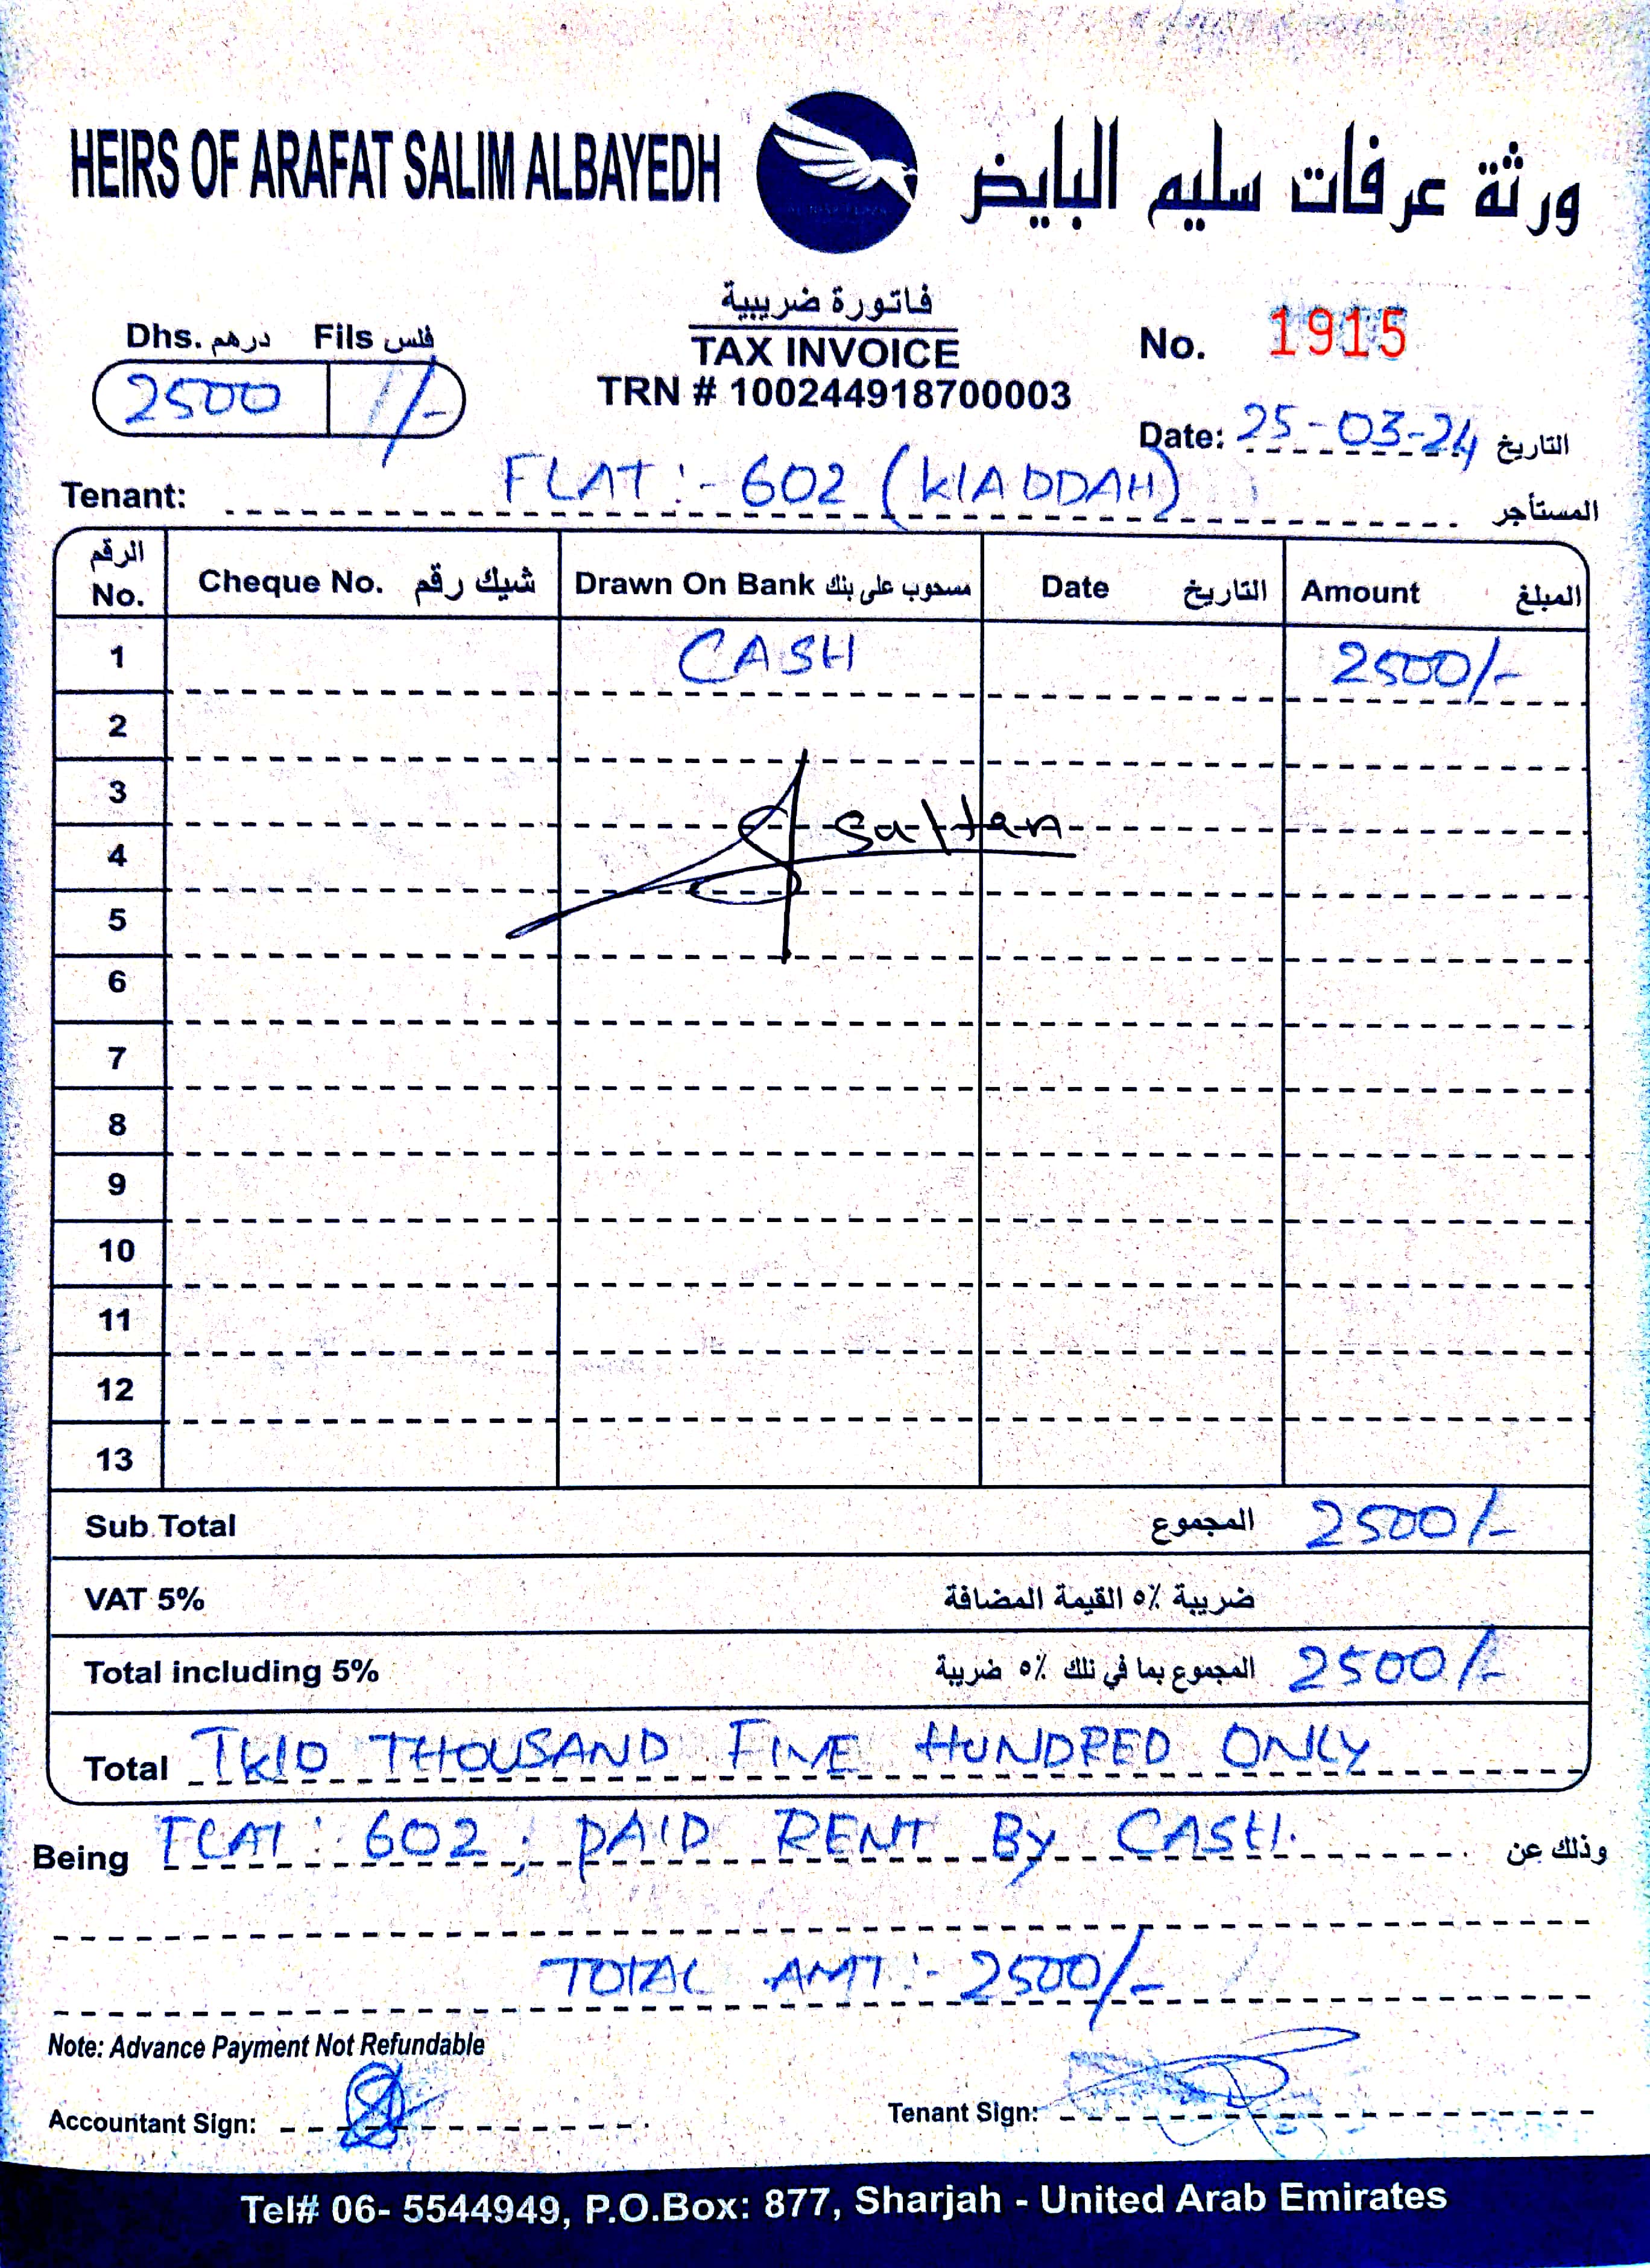 HEIRS OF ARAFAT SALIM ALBAYEDH ورثة عرفات سليم البايض
فاتورة ضريبية
TAX INVOICE
TRN # 100244918700003
Dhs. درهم Fils فلس
2500 /-
No. 1915
Date: 25-03-24 التاريخ
Tenant: FLAT :- 602 (KIADDAH) المستأجر
الرقم No. Cheque No. شيك رقم Drawn On Bank مسحوب على بنك Date التاريخ Amount المبلغ
1 CASH 2500/-
2
3
Sultan
4
5
6
7
8
9
10
11
12
13
Sub Total المجموع 2500/-
VAT 5% ضريبة ٥٪ القيمة المضافة
Total including 5% المجموع بما في ذلك ٥٪ ضريبة 2500/-
Total TWO THOUSAND FIVE HUNDRED ONLY
Being FLAT: 602; PAID RENT By CASH. وذلك عن
TOTAL AMT :- 2500/-
Note: Advance Payment Not Refundable
Accountant Sign: Tenant Sign:
Tel# 06- 5544949, P.O.Box: 877, Sharjah - United Arab Emirates